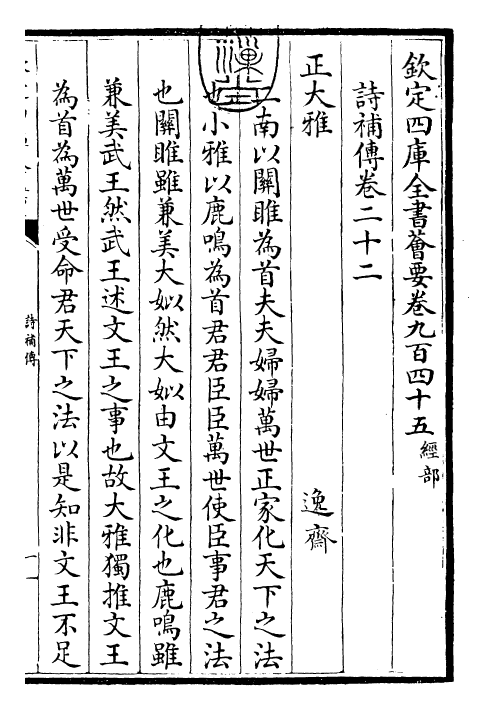 欽定四庫全書薈要卷九百四十五經部
詩補傳卷二十二
正大雅 逸齋
二南以關雎為首夫夫婦婦萬世正家化天下之法
也小雅以鹿鳴為首君君臣臣萬世使臣事君之法
也關雎雖兼美大姒然大姒由文王之化也鹿鳴雖
兼美武王然武王述文王之事也故大雅獨推文王
為首為萬世受命君天下之法以是知非文王不足
詩補傳